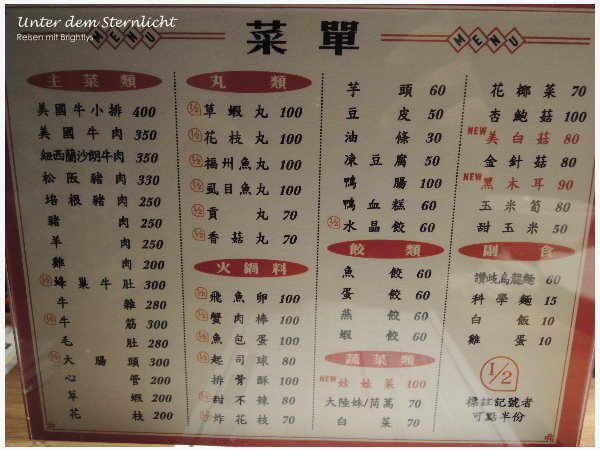 Unter dem Sternlicht
Reisen mit Brightlys
MENU
菜單
MENU
主菜類
美國牛小排 400
美國牛肉 350
紐西蘭沙朗牛肉 350
松阪豬肉 330
培根豬肉 250
豬肉 250
羊肉 250
雞肉 200
1/2 蜂巢牛肚 300
牛雜 280
1/2 牛筋 300
毛肚 280
1/2 大腸頭 300
心管 200
草蝦 200
花枝 200
丸類
1/2 草蝦丸 100
1/2 花枝丸 100
1/2 福州魚丸 100
1/2 虱目魚丸 100
1/2 貢丸 70
1/2 香菇丸 70
火鍋料
1/2 飛魚卵 100
1/2 蟹肉棒 100
1/2 魚包蛋 100
1/2 起司球 80
排骨酥 100
1/2 甜不辣 80
1/2 炸花枝 70
芋頭 60
豆皮 50
油條 30
凍豆腐 50
鴨腸 100
鴨血糕 60
1/2 水晶餃 60
餃類
魚餃 60
蛋餃 60
燕餃 60
蝦餃 60
蔬菜類
NEW 娃娃菜 100
大陸妹/茼萵 70
白菜 70
花椰菜 70
杏鮑菇 100
NEW 美白菇 80
金針菇 80
NEW 黑木耳 90
玉米筍 80
甜玉米 50
副食
讚岐烏龍麵 60
科學麵 15
白飯 10
雞蛋 10
1/2
標註記號者
可點半份